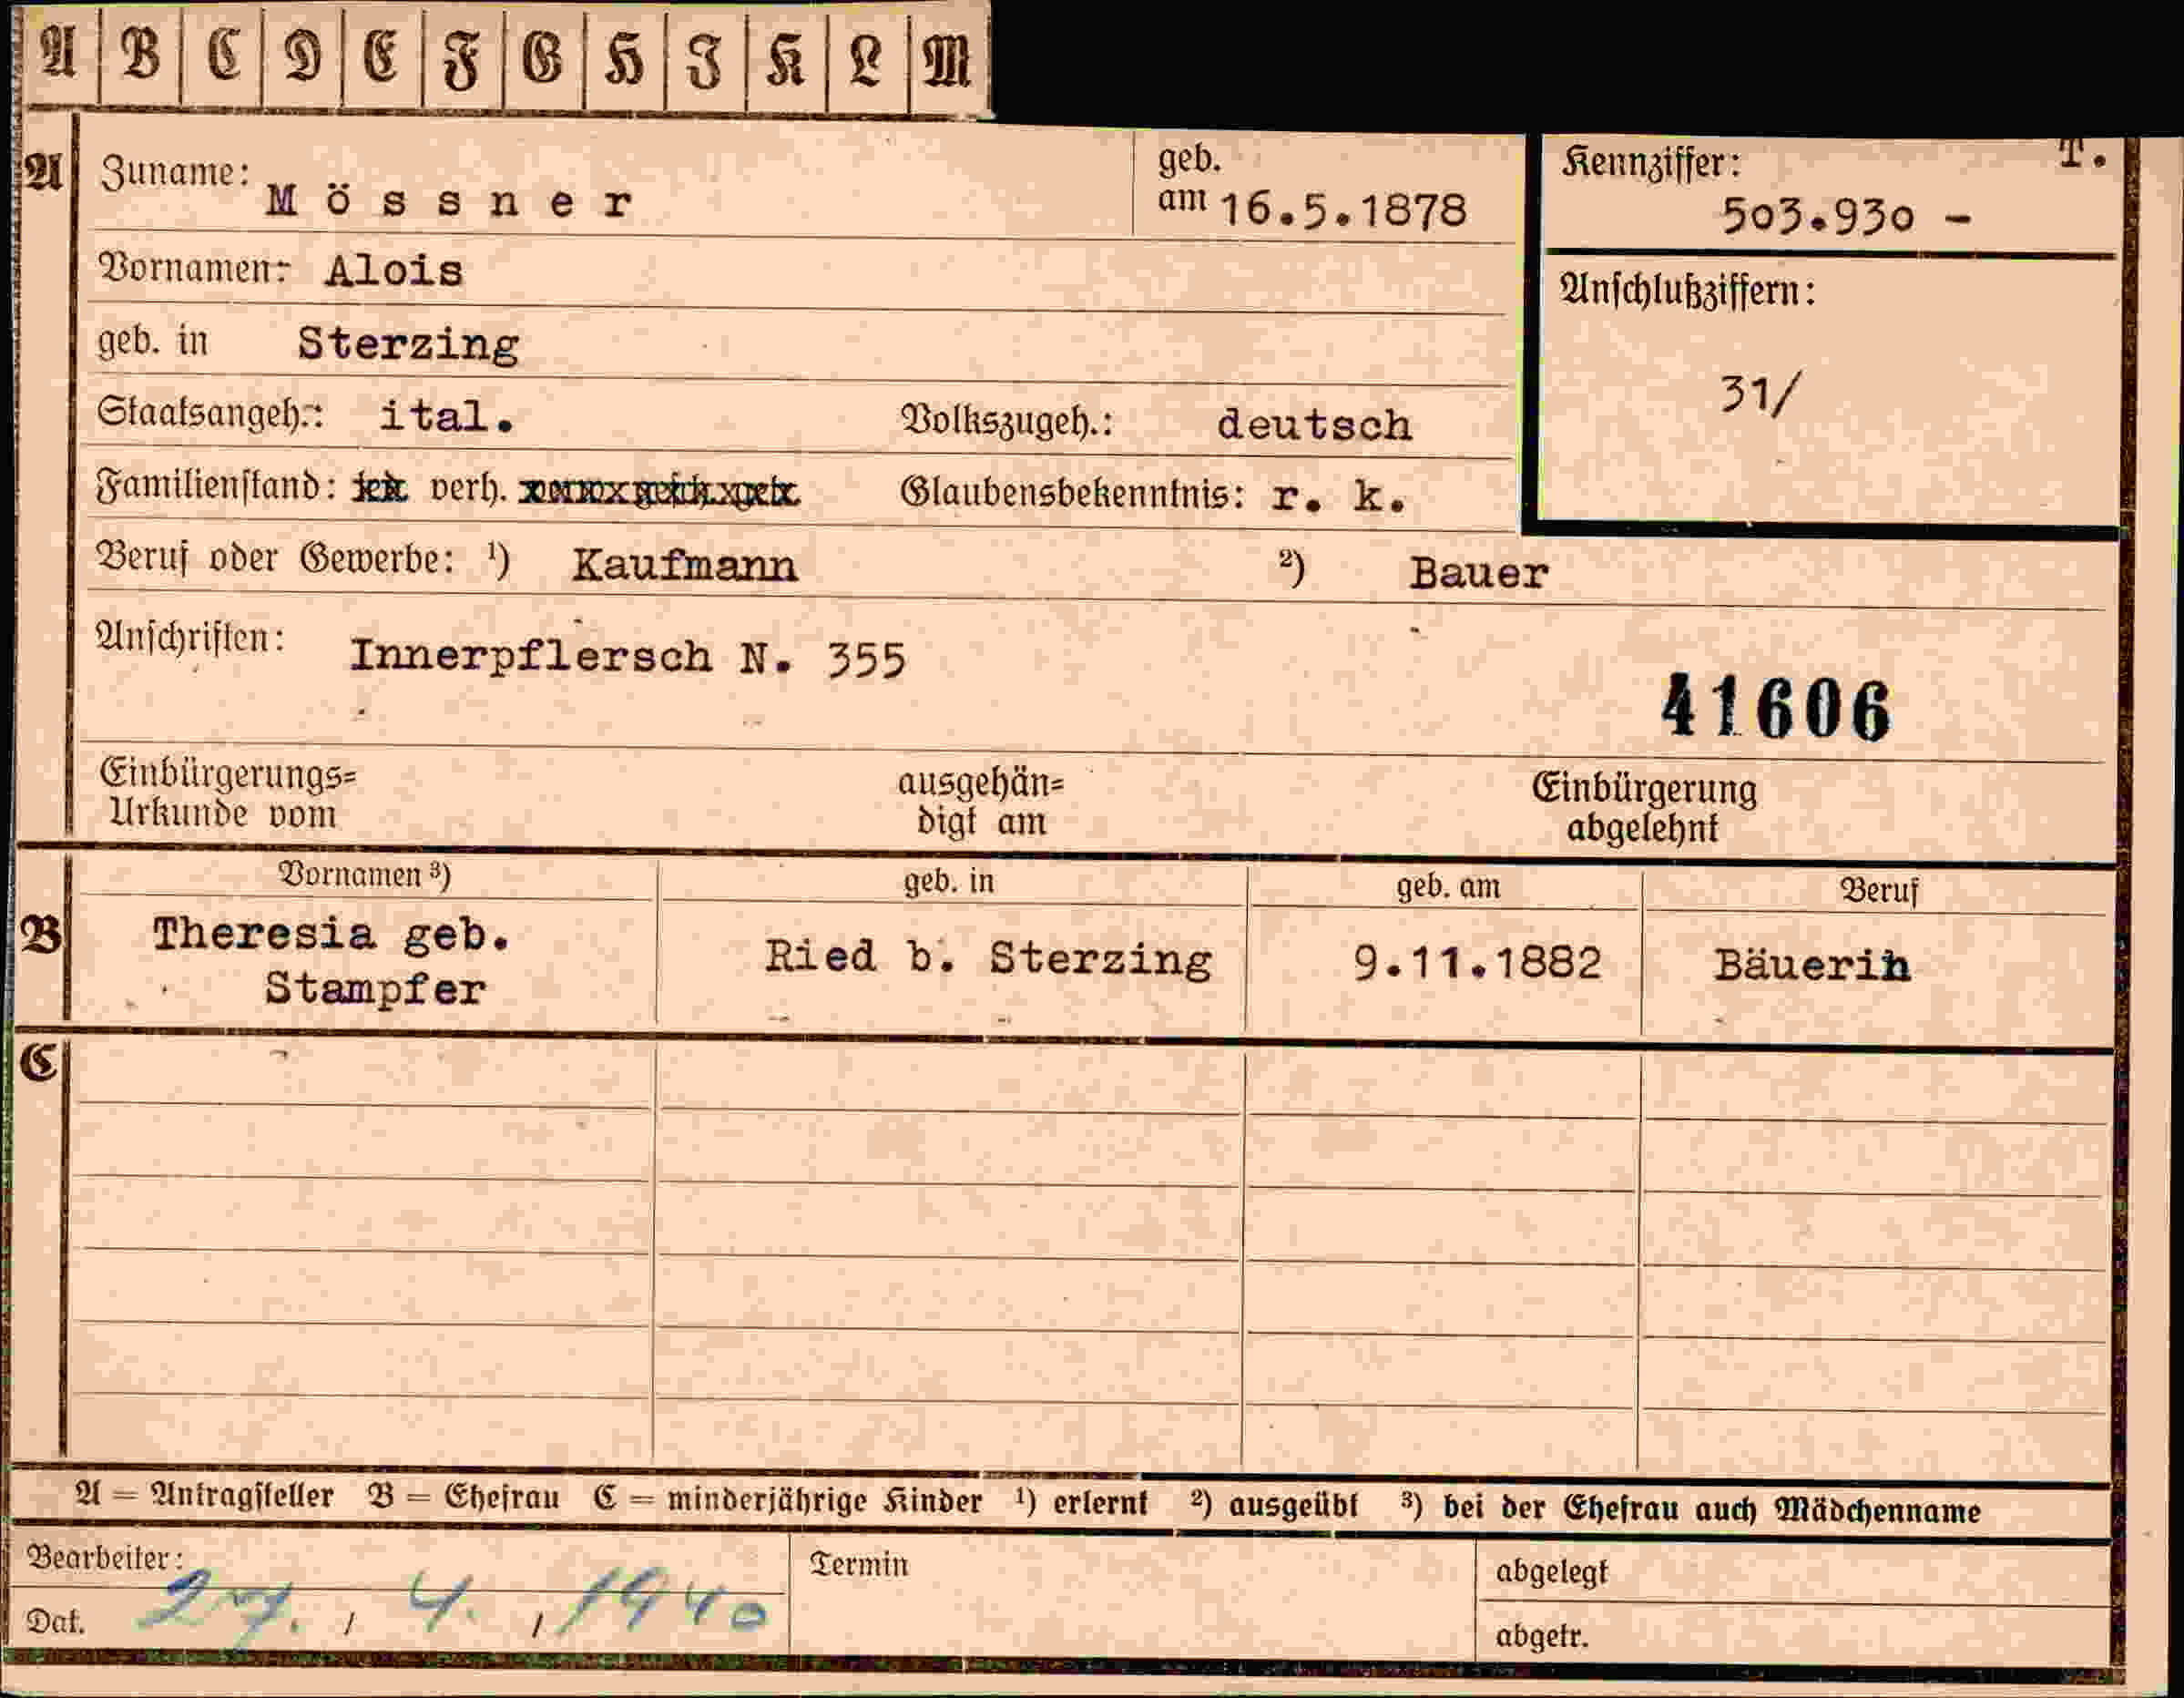 A B C D E F G H I K L M
A Zuname: Mössner geb. am 16.5.1878
Kennziffer: T.
503.930 -
Vornamen: Alois
Anschlußziffern:
31/
geb. in Sterzing
Staatsangeh.: ital. Volkszugeh.: deutsch
Familienstand: verh. Glaubensbekenntnis: r. k.
Beruf oder Gewerbe: ¹) Kaufmann ²) Bauer
Anschriften: Innerpflersch N. 355
41606
Einbürgerungs= ausgehän= Einbürgerung
Urkunde vom digt am abgelehnt
Vornamen ³) geb. in geb. am Beruf
B Theresia geb. Ried b. Sterzing 9.11.1882 Bäuerin
Stampfer
C
A = Antragsteller B = Ehefrau C = minderjährige Kinder ¹) erlernt ²) ausgeübt ³) bei der Ehefrau auch Mädchenname
Bearbeiter: Termin abgelegt
Dat. / 4. / 1940 abgetr.